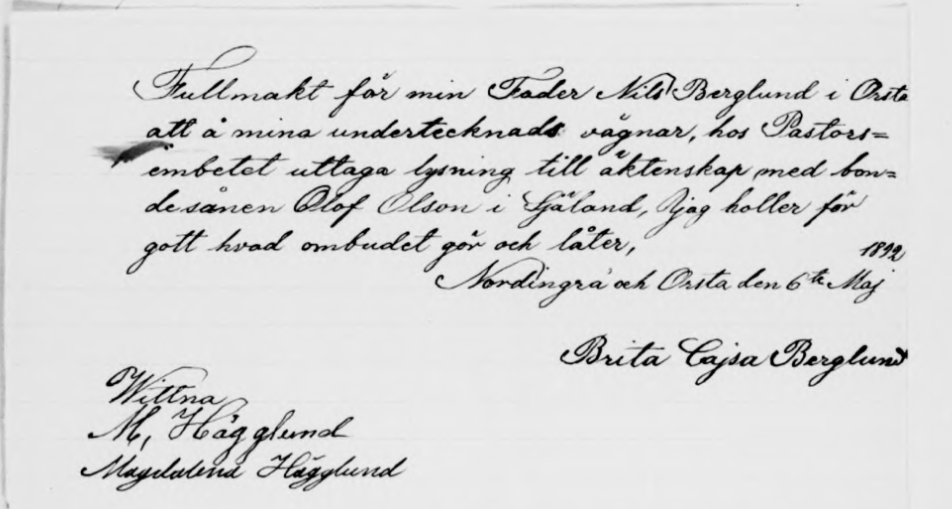 Fullmakt för min Fader Nils Berglund i Orsta
att å mina undertecknads vägnar, hos Pastors=
embetet uttaga lysning till äktenskap med bon=
desånen Olof Olson i Själand, jag holler för
gott hvad ombudet gör och låter,
1892
Nordingrå och Orsta den 6te Maj
Brita Cajsa Berglund
Wittna
M, Hägglund
Magdalena Hägglund